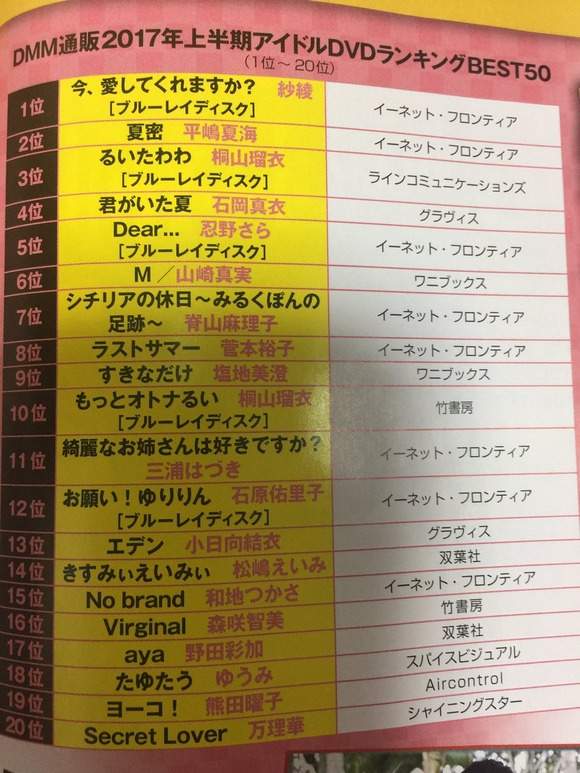 DMM通販2017年上半期アイドルDVDランキングBEST50
(1位～20位)
1位 今、愛してくれますか？ 紗綾 イーネット・フロンティア
[ブルーレイディスク]
2位 夏密 平嶋夏海 イーネット・フロンティア
3位 るいたわわ 桐山瑠衣 ラインコミュニケーションズ
[ブルーレイディスク]
4位 君がいた夏 石岡真衣 グラヴィス
5位 Dear... 忍野さら イーネット・フロンティア
[ブルーレイディスク]
6位 M／山崎真実 ワニブックス
7位 シチリアの休日～みるくぽんの イーネット・フロンティア
足跡～ 脊山麻理子
8位 ラストサマー 菅本裕子 イーネット・フロンティア
9位 すきなだけ 塩地美澄 ワニブックス
10位 もっとオトナるい 桐山瑠衣 竹書房
[ブルーレイディスク]
11位 綺麗なお姉さんは好きですか？ イーネット・フロンティア
三浦はづき
12位 お願い！ゆりりりん 石原佑里子 イーネット・フロンティア
[ブルーレイディスク]
13位 エデン 小日向結衣 グラヴィス
14位 きすみぃえいみぃ 松嶋えいみ 双葉社
15位 No brand 和地つかさ イーネット・フロンティア
16位 Virginal 森咲智美 竹書房
17位 aya 野田彩加 双葉社
18位 たゆたう ゆうみ スパイスビジュアル
19位 ヨーコ！ 熊田曜子 Aircontrol
20位 Secret Lover 万理華 シャイニングスター